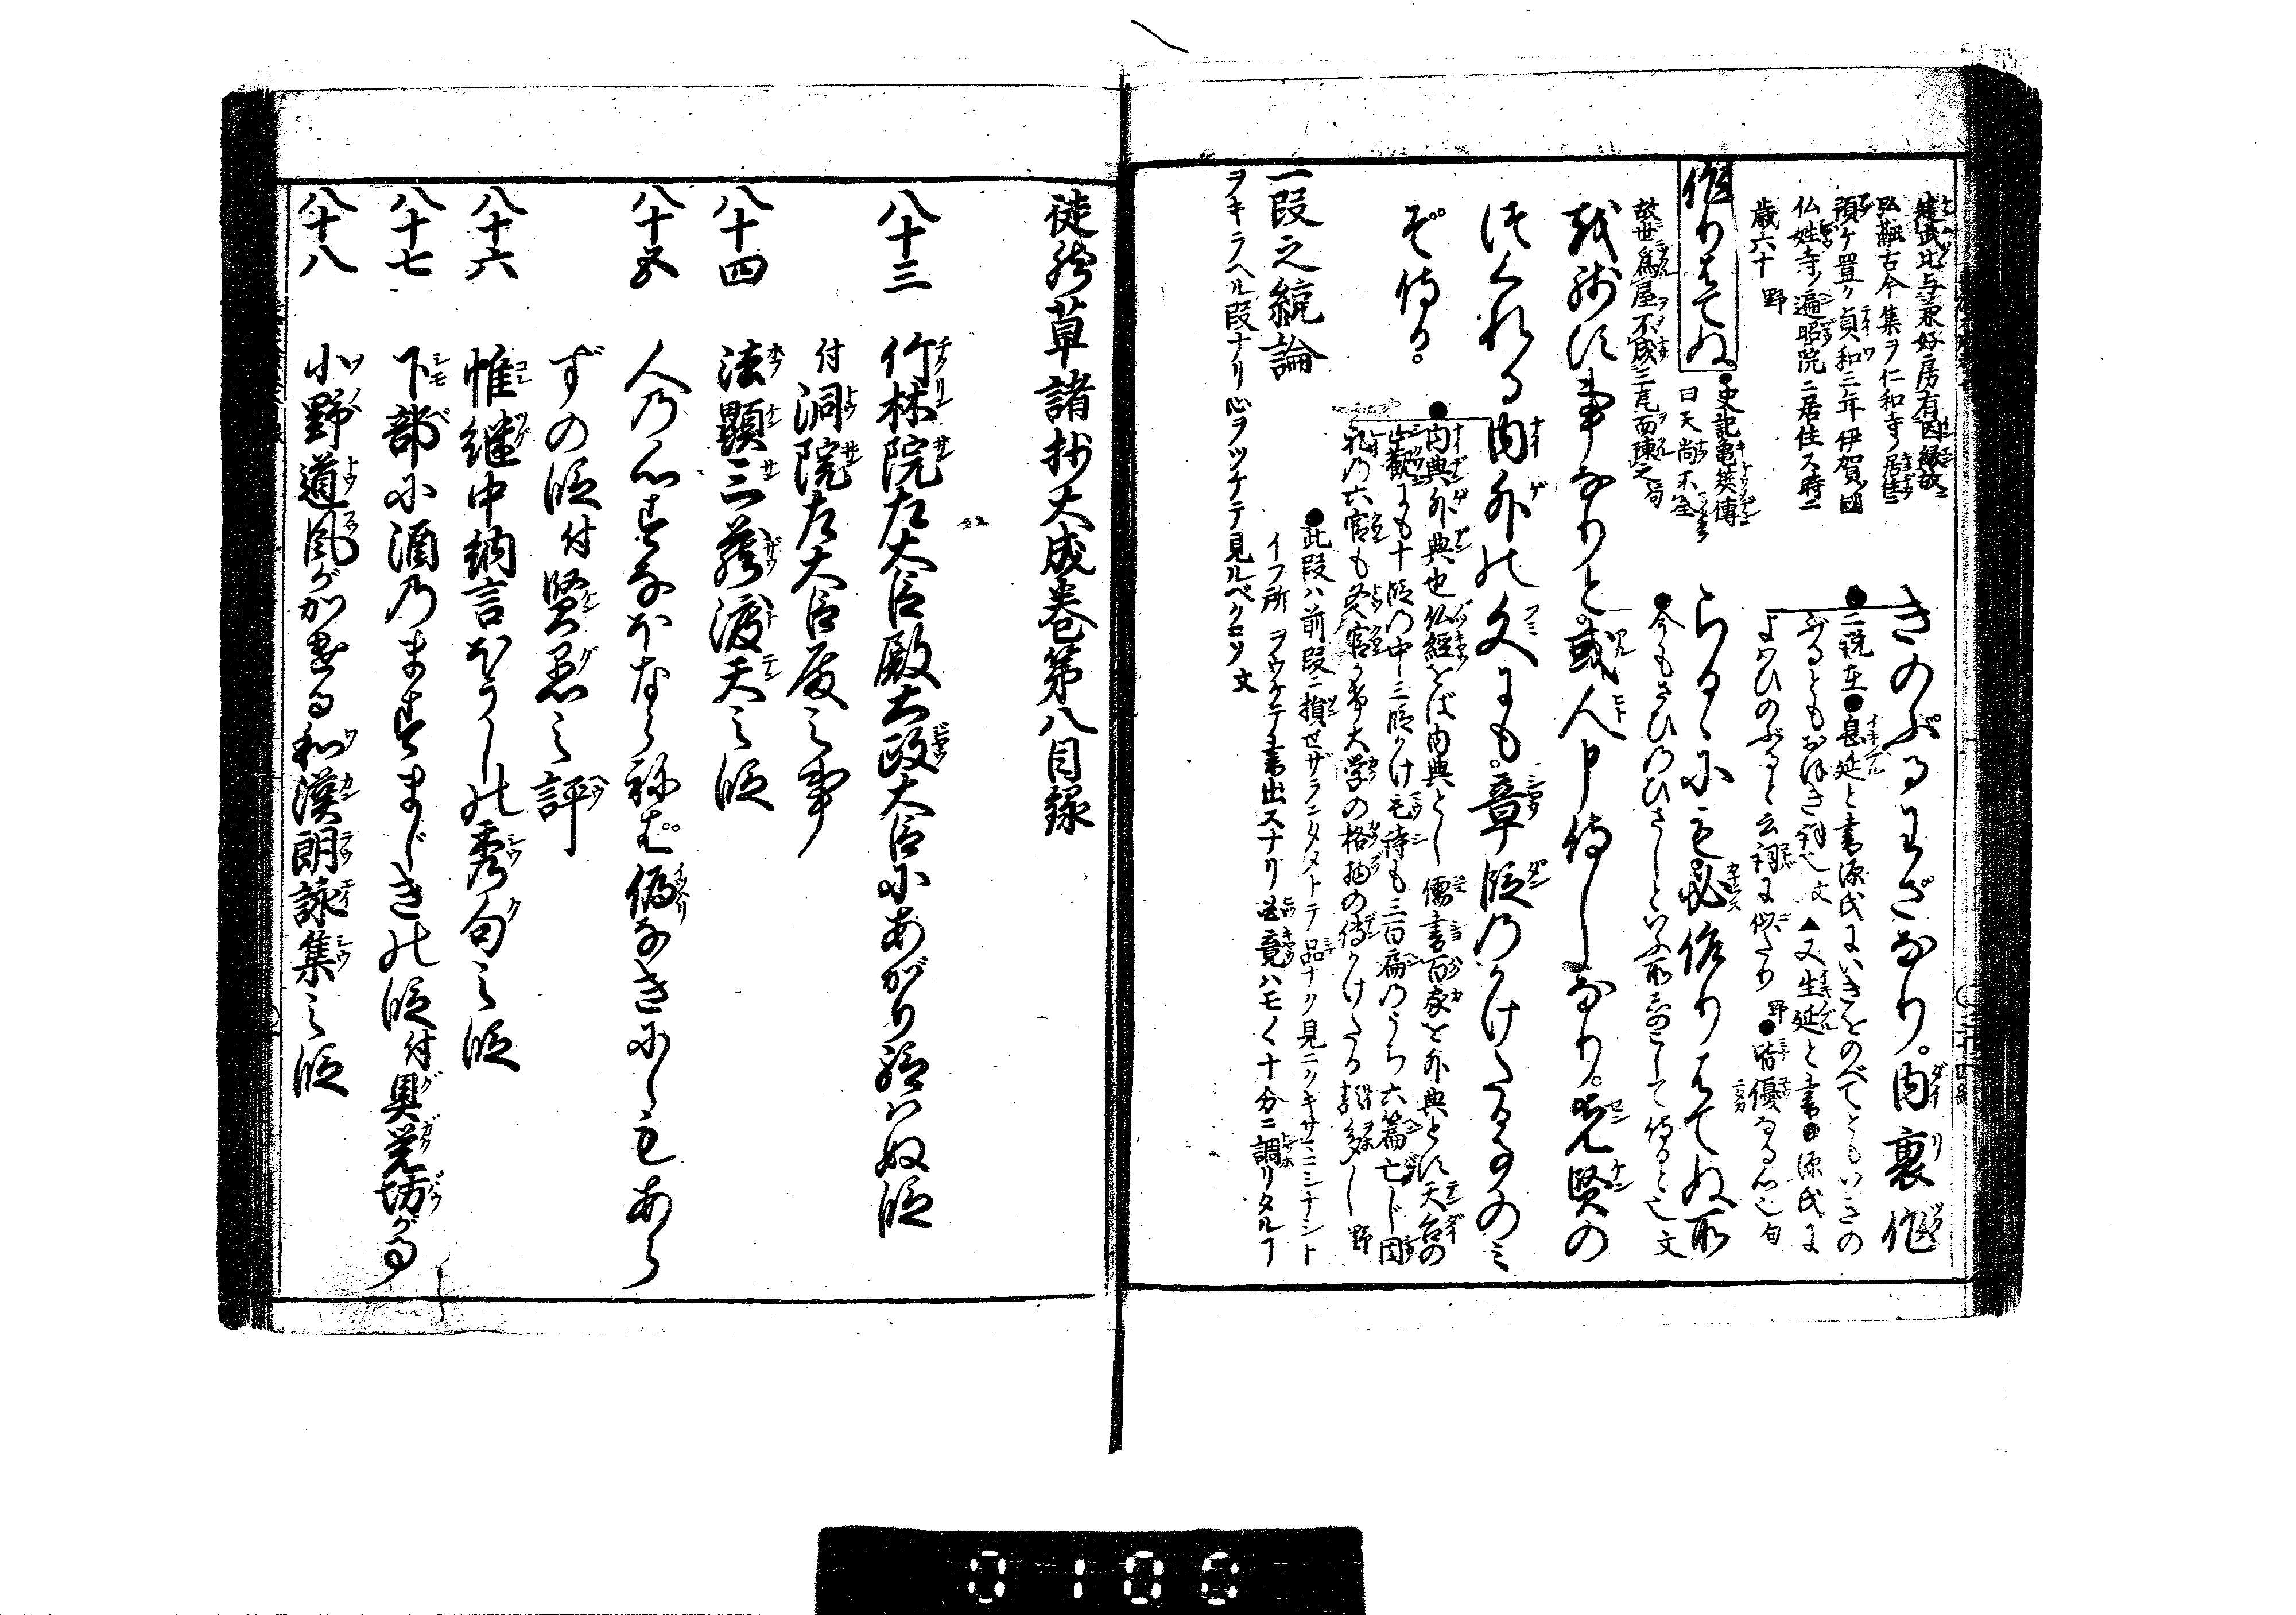 建武比与兼好房有因縁故ニ
弘融古今集ヲ仁和寺ノ居住ニ
預ケ置ク貞和三年伊賀國
仏姓寺ノ遍昭院ニ居住ス時ニ
歳六十　野
きのぶるわざなり。内裏作
●二説在●息延と書源氏にいきをのべてともいきの
ぶるともおほき詞也文▲又生延と書●源氏に
よはひのぶると云詞に似たり　野●皆優なる心也句
作りはてぬ
●史記亀筴傳ニ
曰天尚不全
故世為屋不成三瓦而陳之句
らるゝにも必作りはてぬ所
●今もさひのひさしといふ所
残す事なりと。或人申侍しなり。先賢の
つくれる内外の文にも。章段のかけたる事のみ
ぞ侍る。
●内典外典也仏経をば内典とし儒書百家を外典とす天台の
止觀にも十段の中三段かけ毛詩も三百扁のうち六篇亡じ周
礼の六官も冬官かけ大学の格物の傳かけたる類多し　野
一段之統論
●此段ハ前段ニ損ゼザランタメトテ品ナク見ニクキサマニシナシト
イフ所ヲウケテ書出スナリ畢竟ハモノヽ十分ニ調リタルフ
ヲキラヘル段ナリ心ヲツケテ見ルベクコソ　文
徒然草諸抄大成巻第八目録
八十三　竹林院左大臣殿太政大臣にあがり給はぬ段
付洞院左大臣殿之事
八十四　法顯三蔵渡天之段
八十五　人の心すなほならねば偽なきにしもあら
ずの段付賢愚之評
八十六　惟継中納言ぼうしの秀句之段
八十七　下部に酒のますまじきの段付具覚坊が事
八十八　小野道風がかける和漢朗詠集之段
0106